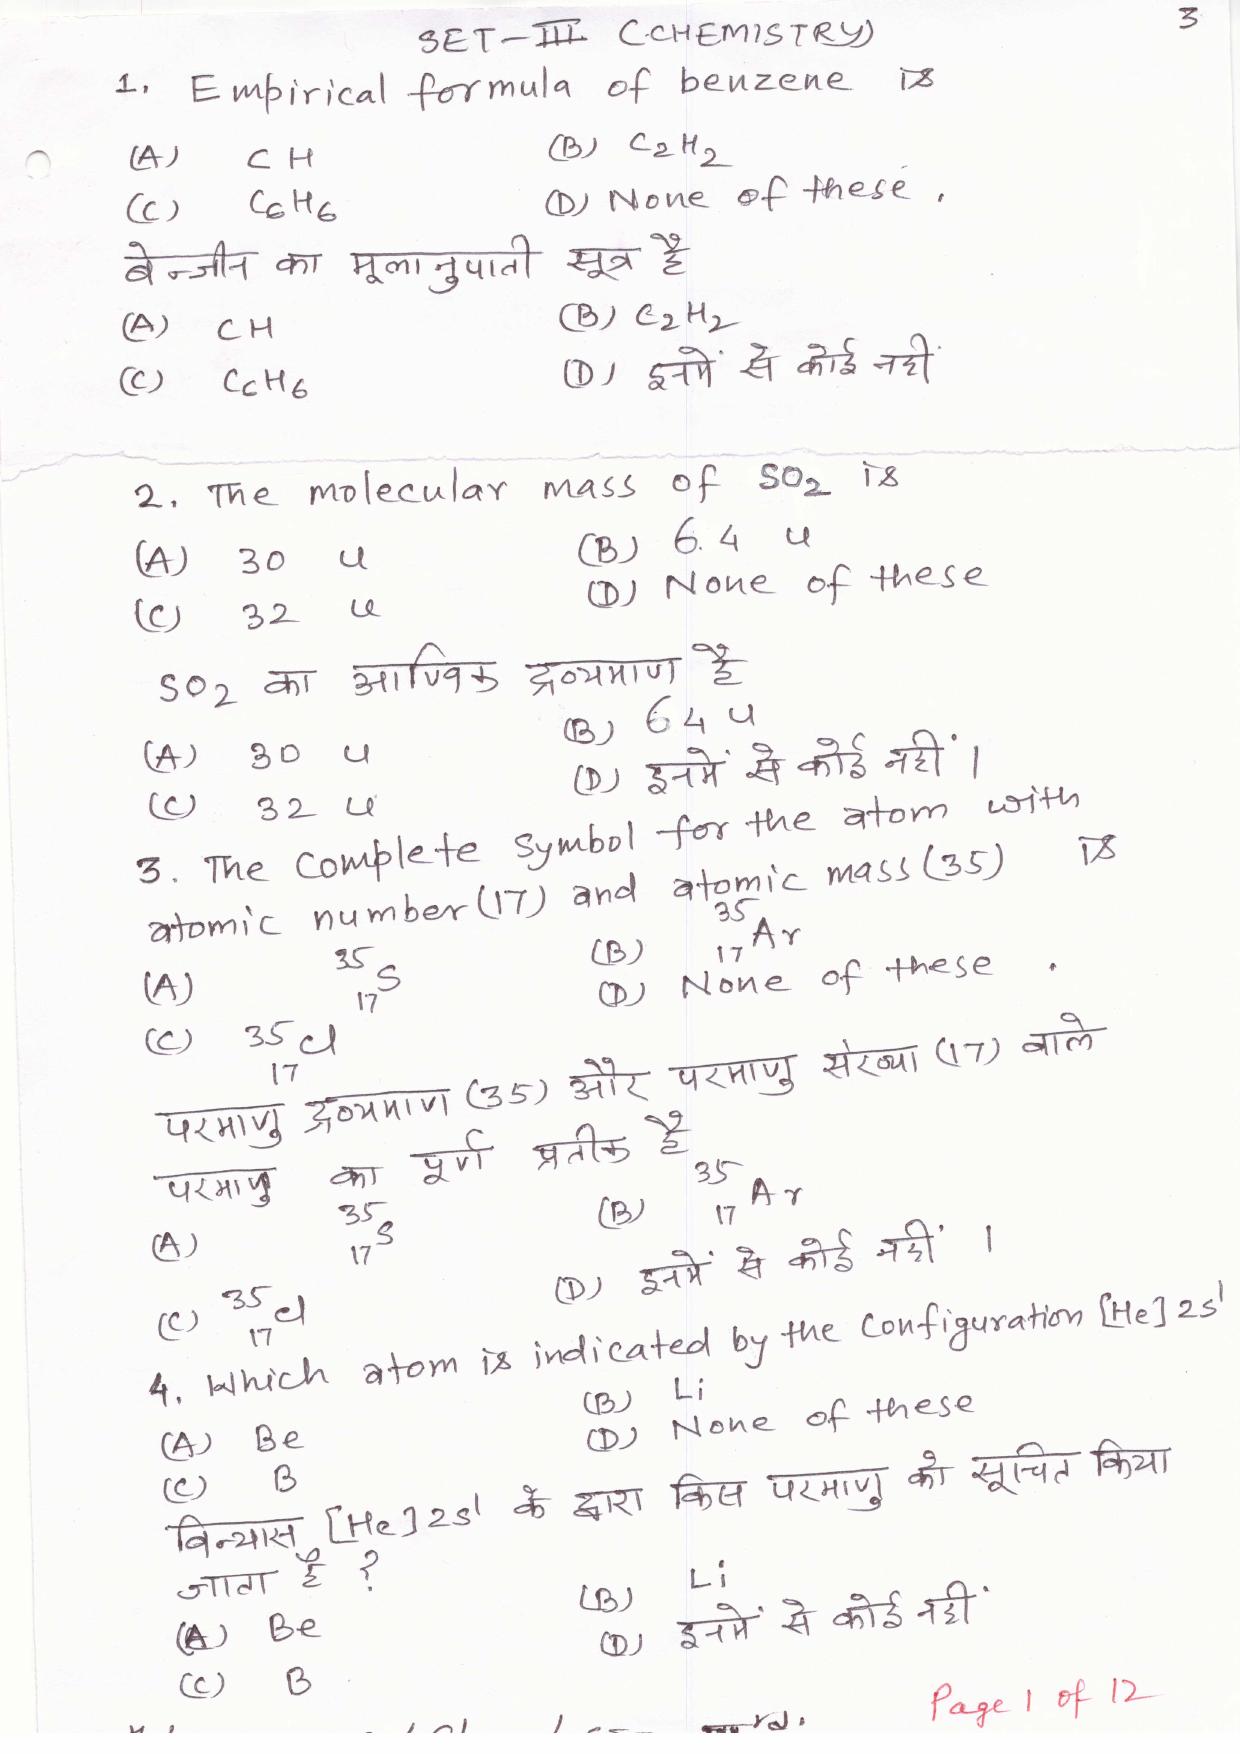 3
SET-III (CHEMISTRY)
1. Empirical formula of benzene is
(A) CH (B) C2H2
(C) C6H6 (D) None of these.
बेन्जीन का मूलानुपाती सूत्र है
(A) CH (B) C2H2
(C) C6H6 (D) इनमें से कोई नहीं
2. The molecular mass of SO2 is
(A) 30 u (B) 6.4 u
(C) 32 u (D) None of these
SO2 का आण्विक द्रव्यमाण है
(A) 30 u (B) 64 u
(C) 32 u (D) इनमें से कोई नहीं।
3. The Complete Symbol for the atom with
atomic number (17) and atomic mass (35) is
(A) 35 17 S (B) 35 17 Ar
(C) 35 17 Cl (D) None of these.
परमाणु द्रव्यमाण (35) और परमाणु संख्या (17) वाले
परमाणु का पूर्ण प्रतीक है
(A) 35 17 S (B) 35 17 Ar
(C) 35 17 Cl (D) इनमें से कोई नहीं।
4. Which atom is indicated by the Configuration [He] 2s1
(A) Be (B) Li
(C) B (D) None of these
विन्यास [He] 2s1 के द्वारा किस परमाणु को सूचित किया
जाता है ?
(A) Be (B) Li
(C) B (D) इनमें से कोई नहीं
Page 1 of 12